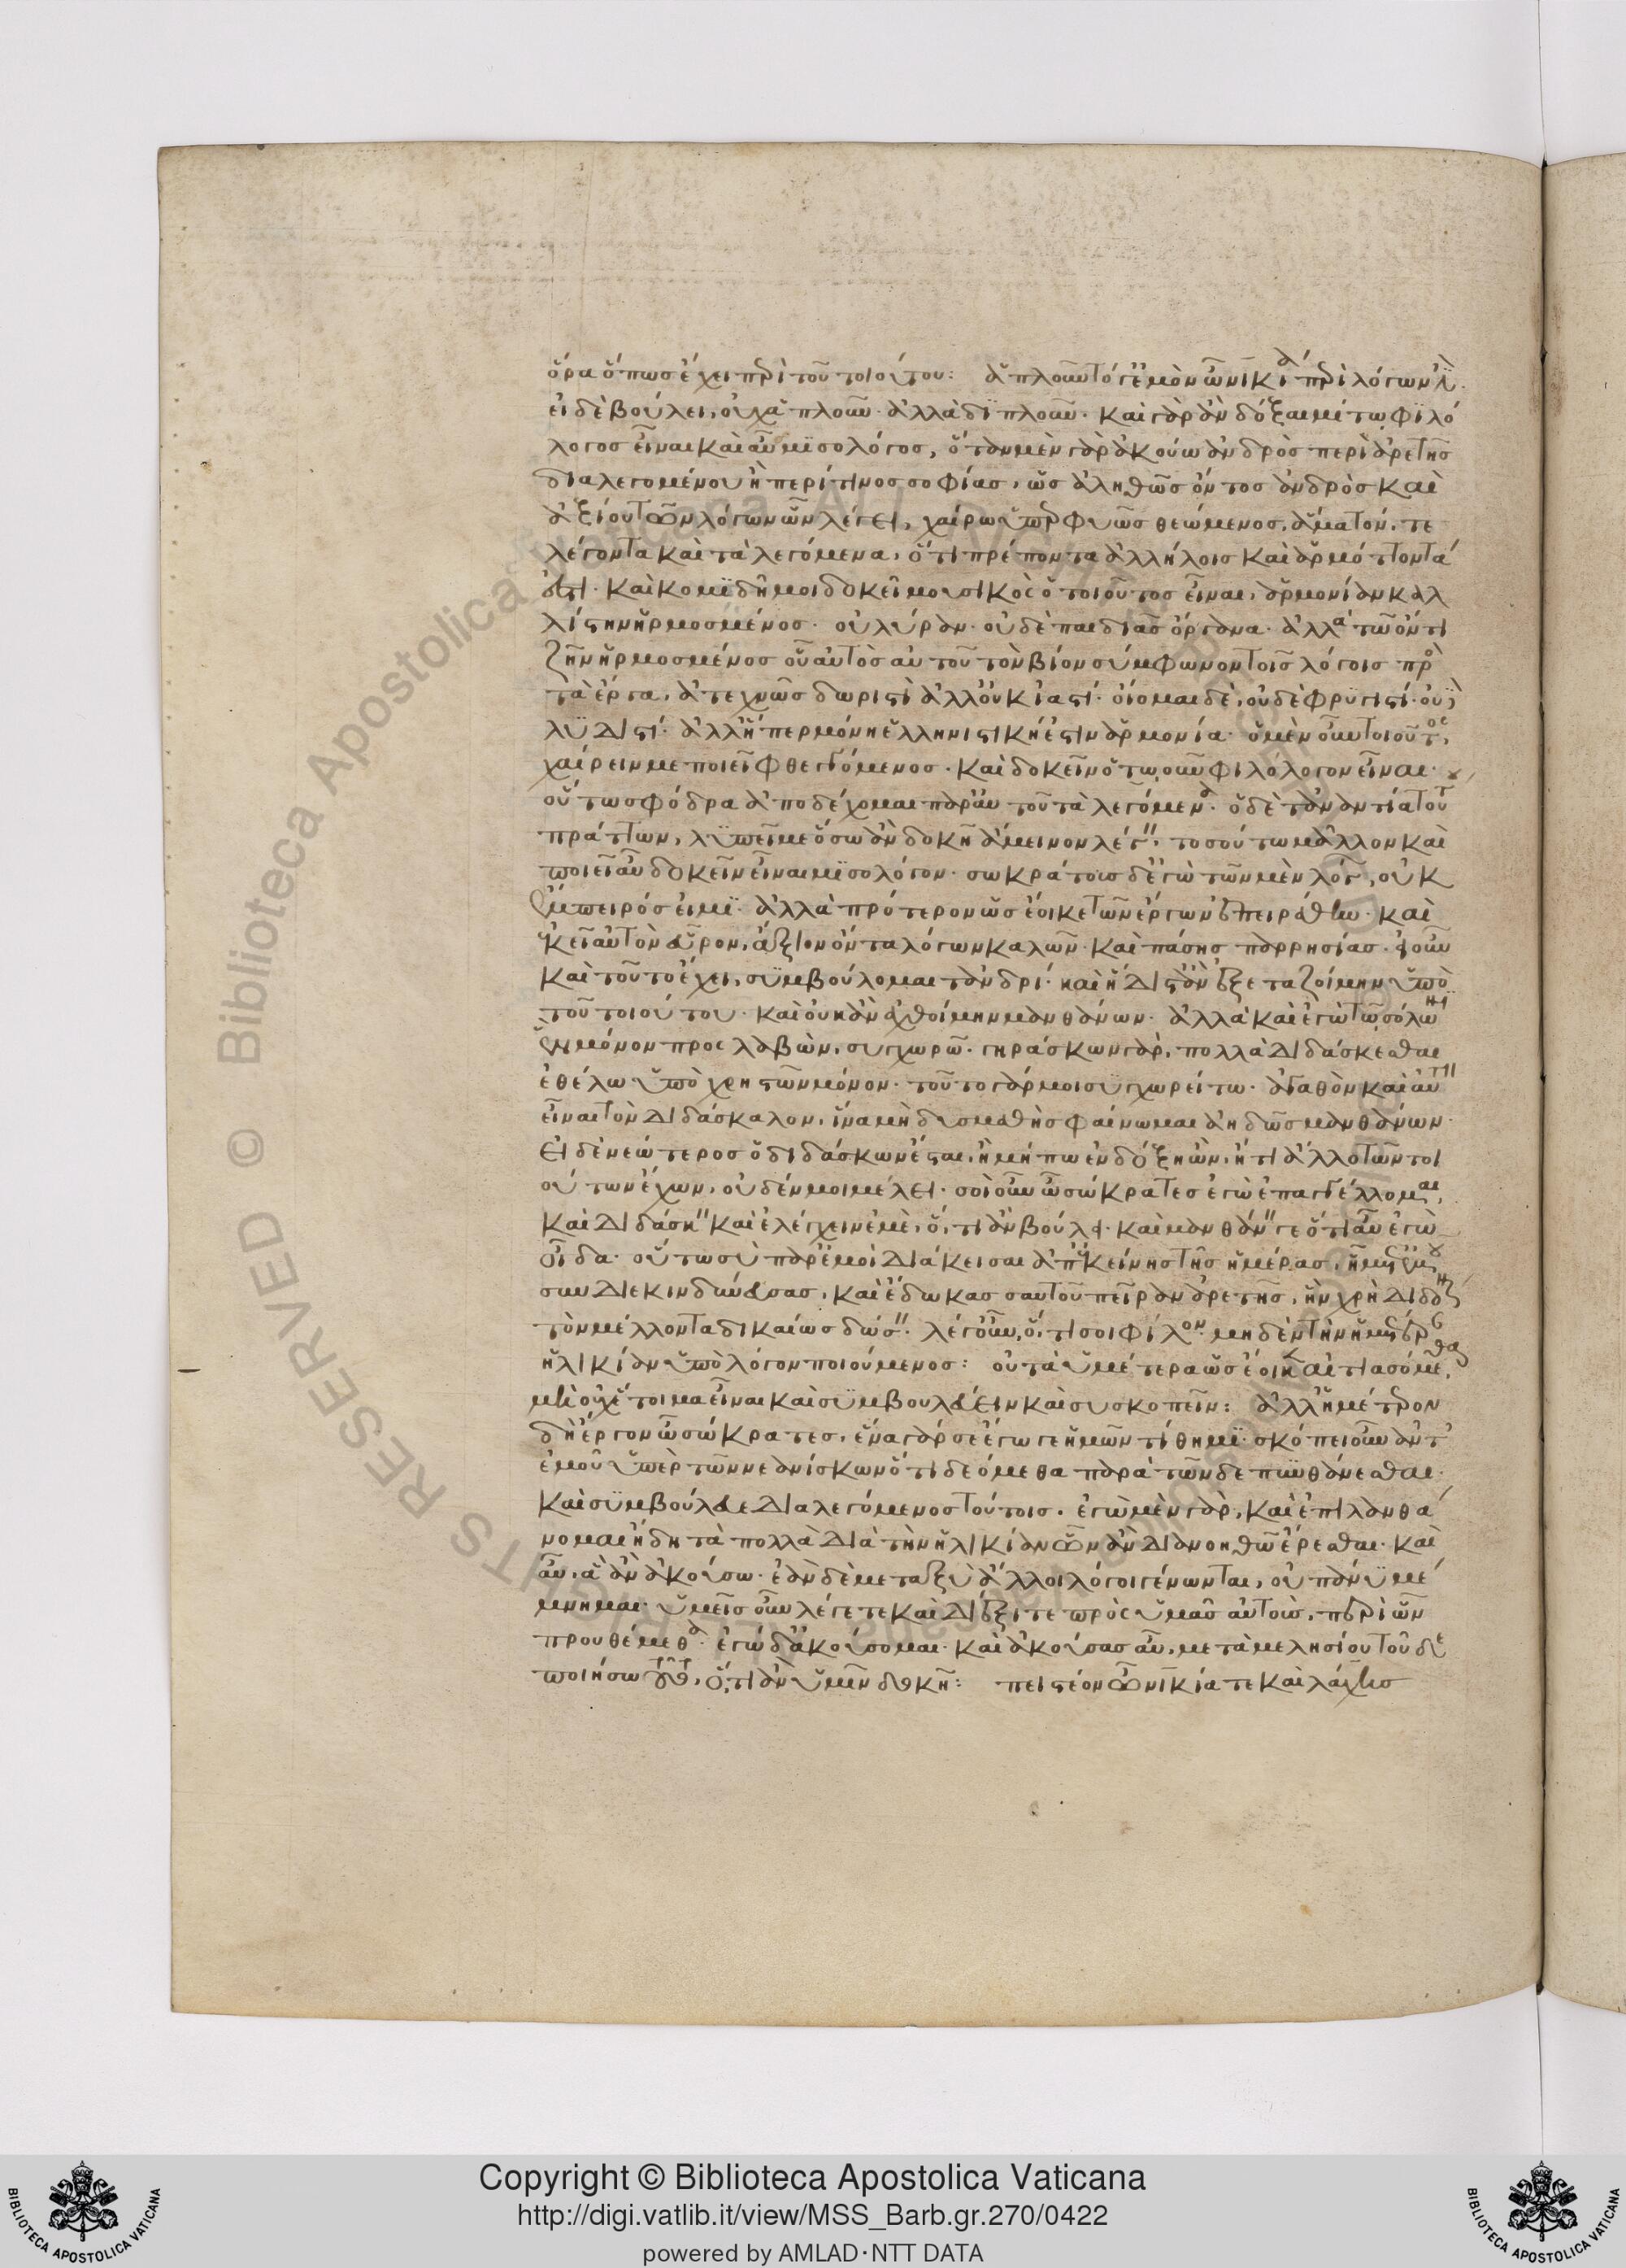 ὅρα ὅπως ἔχει περὶ τοῦ τοιούτου: ἁπλοῦν τό γ' ἐμὸν ὦ νικία περὶ λόγων ἐστί.
εἰ δὲ βούλει, οὐχ ἁπλοῦν· ἀλλὰ διπλοῦν· καὶ γὰρ ἂν δόξαιμί τῳ φιλό
λογος εἶναι καὶ αὖ μισολόγος, ὅταν μὲν γὰρ ἀκούω ἀνδρὸς περὶ ἀρετῆς
διαλεγομένου ἢ περί τινος σοφίας, ὡς ἀληθῶς ὄντος ἀνδρὸς καὶ
ἀξίου τῶν λόγων ὧν λέγει, χαίρω ὑπερφυῶς θεώμενος, ἅμα τόν, τε
λέγοντα καὶ τὰ λεγόμενα, ὅτι πρέποντα ἀλλήλοις καὶ ἁρμόττοντά
ἐστι. καὶ κομιδῇ μοι δοκεῖ μουσικὸς ὁ τοιοῦτος εἶναι, ἁρμονίαν καλ
λίστην ἡρμοσμένος. οὐ λύραν. οὐδὲ παιδιᾶς ὄργανα. ἀλλὰ τῷ ὄντι
ζῆν ἡρμοσμένος οὗ αὐτὸς αὑτοῦ τὸν βίον σύμφωνον τοῖς λόγοις πρὸς
τὰ ἔργα, ἀτεχνῶς δωριστὶ ἀλλ' οὐκ ἰαστί. οἴομαι δὲ, οὐδὲ φρυγιστί. οὐδὲ
λυδιστί. ἀλλ' ἥπερ μόνη ἑλληνική ἐστιν ἁρμονία. ὁ μὲν οὖν τοιοῦτος,
χαίρειν με ποιεῖ φθεγγόμενος. καὶ δοκεῖν ὁτῳοῦν φιλόλογον εἶναι.
οὕτω σφόδρα ἀποδέχομαι παρ' αὐτοῦ τὰ λεγόμενα. ὁ δὲ τἀναντία τούτου
πράττων, λυπεῖ με ὅσῳ ἂν δοκῇ ἄμεινον λέγειν, τοσούτῳ μᾶλλον καὶ
ποιεῖ αὖ δοκεῖν εἶναι μισολόγον. σωκράτους δ' ἐγὼ τῶν μὲν λόγων, οὐκ
ἔμπειρός εἰμι. ἀλλὰ πρότερον ὡς ἔοικε τῶν ἔργων ἐπειράθην. καὶ
ἐκεῖ αὐτὸν εὗρον, ἄξιον ὄντα λόγων καλῶν. καὶ πάσης παρρησίας. εἰ οὖν
καὶ τοῦτο ἔχει, συμβούλομαι τἀνδρί. καὶ ἥδιστ' ἂν ἐξεταζοίμην ὑπὸ
τοῦ τοιούτου. καὶ οὐκ ἂν ἀχθοίμην μανθάνων. ἀλλὰ καὶ ἐγὼ τῷ σόλωνι
ἓν μόνον προσλαβὼν, συγχωρῶ. γηράσκων γὰρ, πολλὰ διδάσκεσθαι
ἐθέλω ὑπὸ χρηστῶν μόνον. τοῦτο γάρ μοι συγχωρείτω. ἀγαθὸν καὶ αὐτὸν
εἶναι τὸν διδάσκαλον, ἵνα μὴ δυσμαθὴς φαίνωμαι ἀηδῶς μανθάνων.
εἰ δὲ νεώτερος ὁ διδάσκων ἔσται, ἢ μήπω ἐν δόξῃ ὢν, ἤ τι ἄλλο τῶν τοι
ούτων ἔχων, οὐδέν μοι μέλει. σοὶ οὖν ὦ σώκρατες ἐγὼ ἐπαγγέλλομαι,
καὶ διδάσκειν καὶ ἐλέγχειν ἐμὲ, ὅ, τι ἂν βούλῃ. καὶ μανθάνειν γε ὅ τι αὖ ἐγὼ
οἶδα. οὕτω σὺ παρ' ἐμοὶ διάκεισαι ἀπ' ἐκείνης τῆς ἡμέρας, ᾗ μετ' ἐμοῦ
συνδιεκινδύνευσας, καὶ ἔδωκας σαυτοῦ πεῖραν ἀρετῆς, ἣν χρὴ διδόναι
τὸν μέλλοντα δικαίως δώσειν. λέγ' οὖν, ὅ, τι σοι φίλον. μηδὲν τὴν ἡμετέραν
ἡλικίαν ὑπόλογον ποιούμενος: οὐ τὰ ὑμέτερα ὡς ἔοικεν αἰτιασόμεθα
μὴ οὐχ ἕτοιμα εἶναι καὶ συμβουλεύειν καὶ συσκοπεῖν: ἀλλ' ἡμέτερον
δὴ ἔργον ὦ σώκρατες, ἕνα γάρ σε ἔγωγε ἡμῶν τίθημι. σκόπει οὖν ἀντ'
ἐμοῦ ὑπὲρ τῶν νεανίσκων ὅ τι δεόμεθα παρὰ τῶνδε πυνθάνεσθαι.
καὶ συμβούλευε διαλεγόμενος τούτοις. ἐγὼ μὲν γὰρ, καὶ ἐπιλανθά
νομαι ἤδη τὰ πολλὰ διὰ τὴν ἡλικίαν ὧν ἂν διανοηθῶ ἐρέσθαι. καὶ
αὖ, ἃ ἂν ἀκούσω. ἐὰν δὲ μεταξὺ ἄλλοι λόγοι γένωνται, οὐ πάνυ μέ
μνημαι. ὑμεῖς οὖν λέγετε καὶ διέξιτε πρὸς ὑμᾶς αὐτοὺς, περὶ ὧν
προυθέμεθα. ἐγὼ δ' ἀκούσομαι. καὶ ἀκούσας αὖ, μετὰ μελησίου τοῦδε
ποιήσω τοῦτο, ὅ,τι ἂν ὑμῖν δοκῇ: πειστέον ὦ νικία τε καὶ λάχης
Copyright © Biblioteca Apostolica Vaticana
http://digi.vatlib.it/view/MSS_Barb.gr.270/0422
powered by AMLAD·NTT DATA
BIBLIOTECA APOSTOLICA VATICANA
BIBLIOTECA APOSTOLICA VATICANA